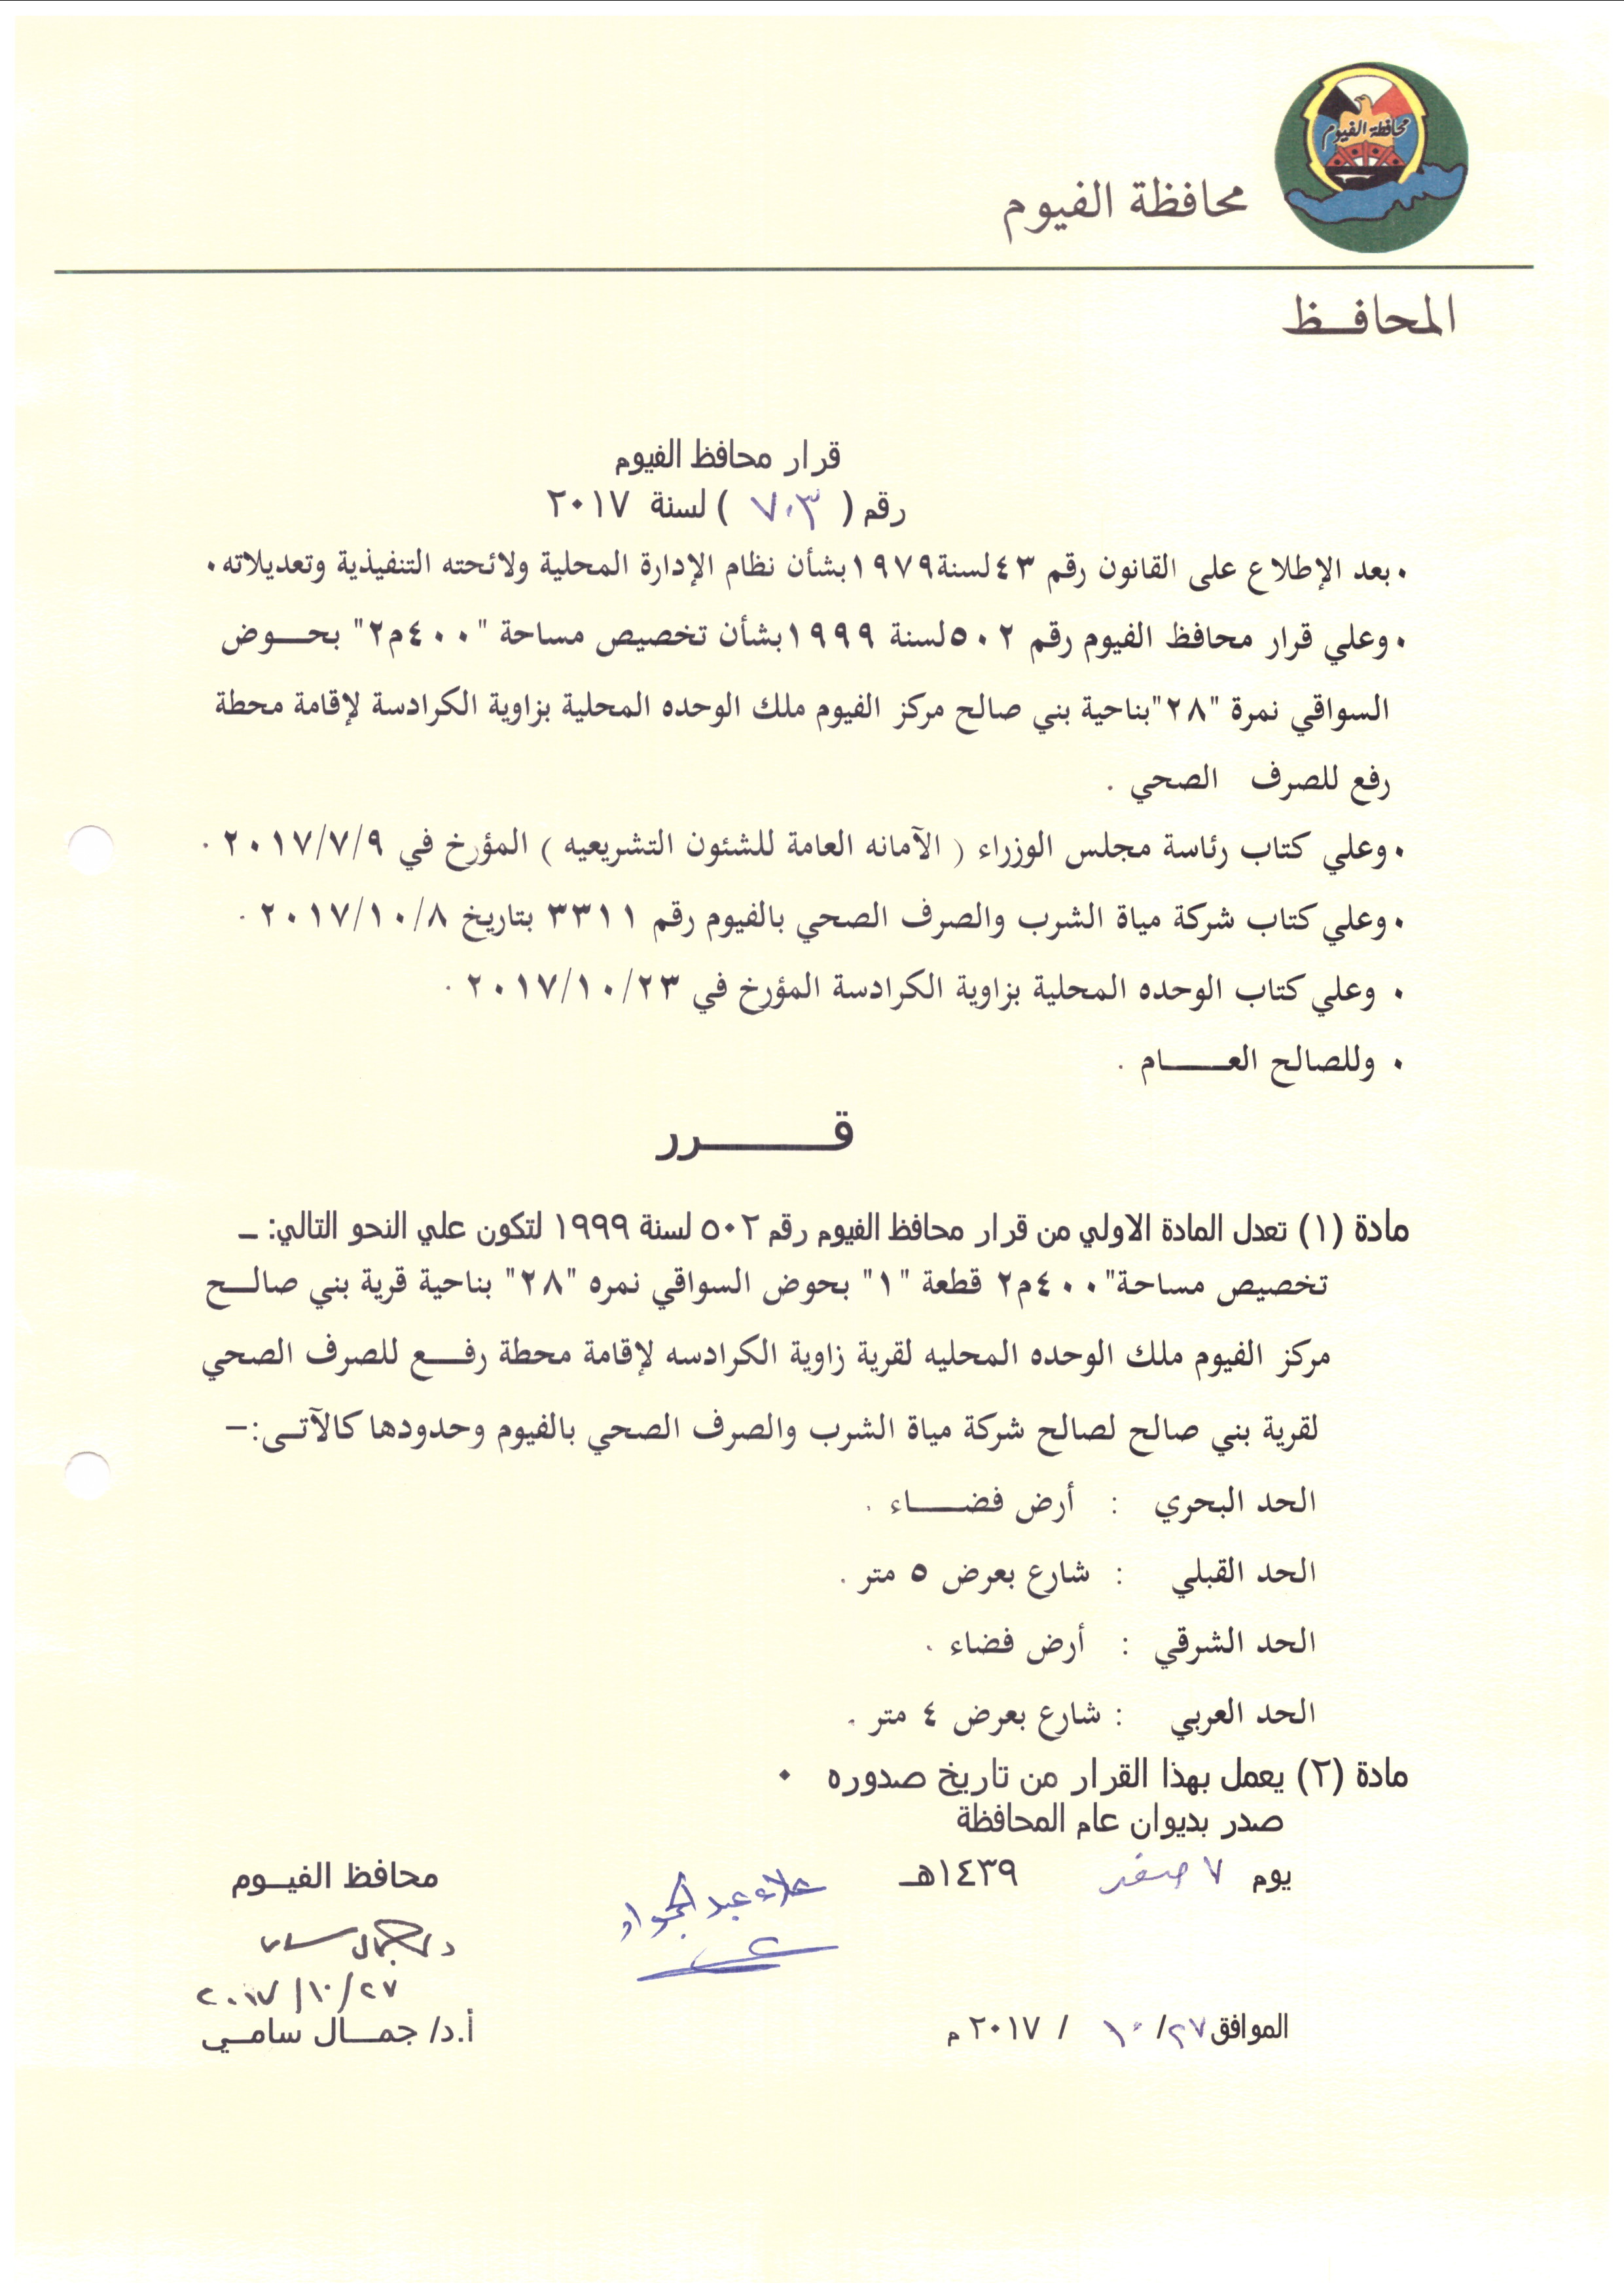 محافظة الفيوم
محافظة الفيوم
المحافـــظ
قرار محافظ الفيوم
رقم ( ٧٠٣ ) لسنة ٢٠١٧
• بعد الإطلاع على القانون رقم ٤٣ لسنة ١٩٧٩ بشأن نظام الإدارة المحلية ولائحته التنفيذية وتعديلاته .
• وعلي قرار محافظ الفيوم رقم ٥٠٢ لسنة ١٩٩٩ بشأن تخصيص مساحة "٤٠٠م٢" بحـــوض
السواقي نمرة "٢٨"بناحية بني صالح مركز الفيوم ملك الوحده المحلية بزاوية الكرادسة لإقامة محطة
رفع للصرف الصحي .
• وعلي كتاب رئاسة مجلس الوزراء ( الآمانه العامة للشئون التشريعيه ) المؤرخ في ٢٠١٧/٧/٩ .
• وعلي كتاب شركة مياة الشرب والصرف الصحي بالفيوم رقم ٣٣١١ بتاريخ ٢٠١٧/١٠/٨ .
• وعلي كتاب الوحده المحلية بزاوية الكرادسة المؤرخ في ٢٠١٧/١٠/٢٣ .
• وللصالح العـــــام .
قــــــــرر
مادة (١) تعدل المادة الاولي من قرار محافظ الفيوم رقم ٥٠٢ لسنة ١٩٩٩ لتكون علي النحو التالي: ـ
تخصيص مساحة"٤٠٠م٢ قطعة "١" بحوض السواقي نمره "٢٨" بناحية قرية بني صالــح
مركز الفيوم ملك الوحده المحليه لقرية زاوية الكرادسه لإقامة محطة رفـــع للصرف الصحي
لقرية بني صالح لصالح شركة مياة الشرب والصرف الصحي بالفيوم وحدودها كالآتـى:–
الحد البحري : أرض فضـــــاء .
الحد القبلي : شارع بعرض ٥ متر .
الحد الشرقي : أرض فضاء .
الحد العربي : شارع بعرض ٤ متر .
مادة (٢) يعمل بهذا القرار من تاريخ صدوره •
صدر بديوان عام المحافظة
يوم ٧ صفر ١٤٣٩هـ
علاء عبد الجواد
محافظ الفيــوم
د. جمال سامى
٢٠١٧/١٠/٢٧
الموافق ٢٧/ ١٠ / ٢٠١٧ م
أ.د/ جمـــال سامــي